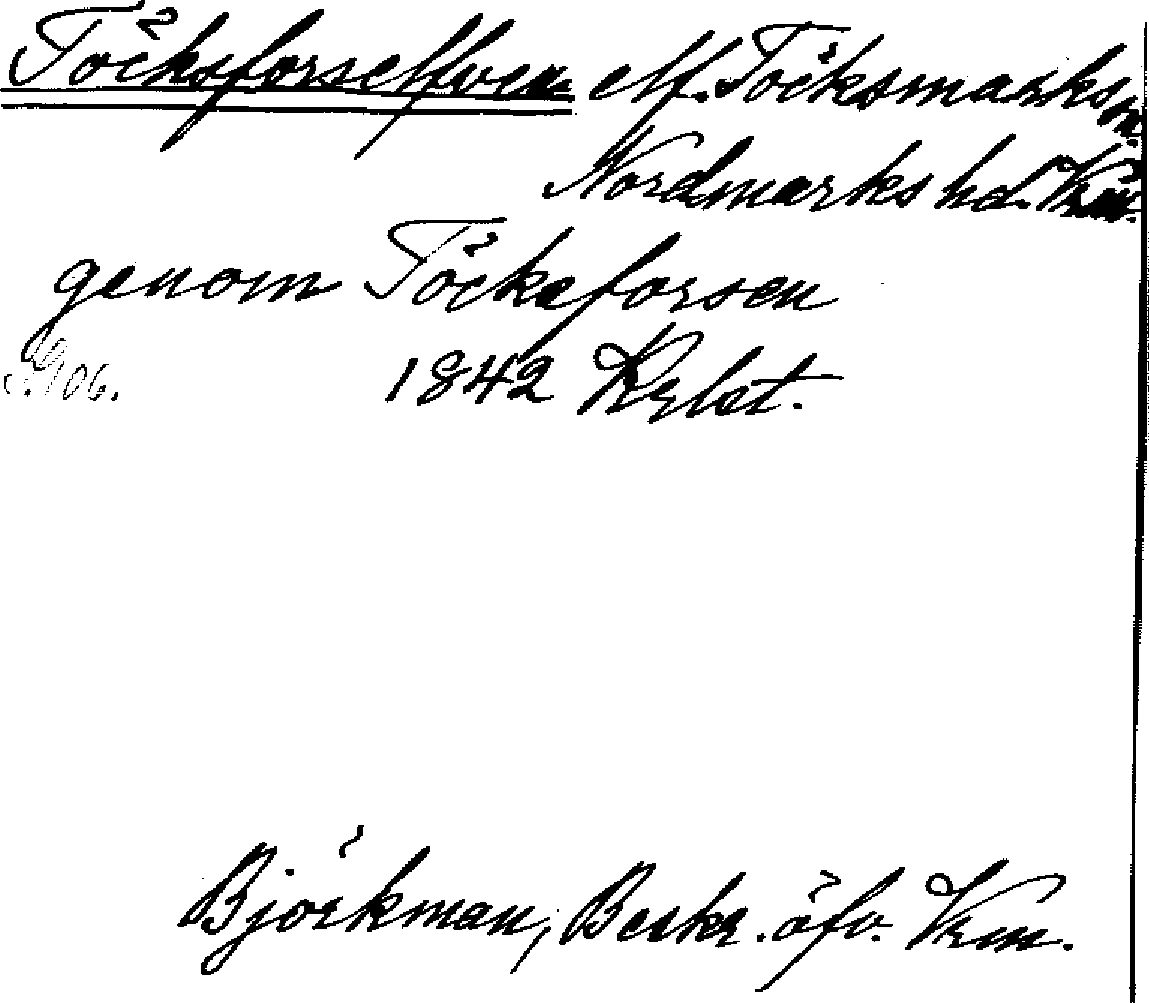 Töcksforselfven elf. Töcksmarks sn.
Nordmarks hd. Vrm.
genom Töcksforsen
S. 106. 1842 Rgbst.
Björkman, Beskr. öfv. Vrm.